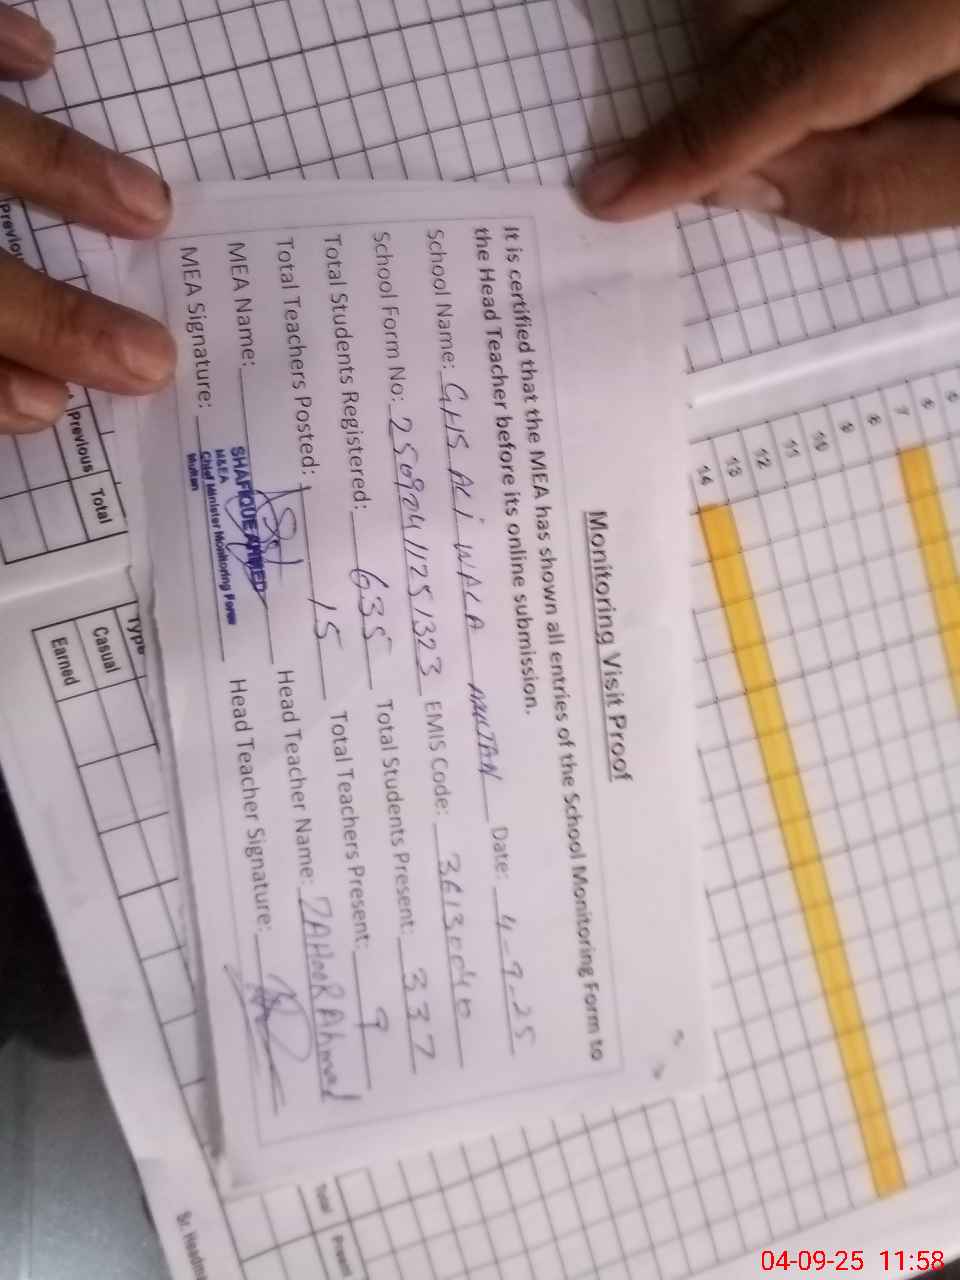 Monitoring Visit Proof
It is certified that the MEA has shown all entries of the School Monitoring Form to
the Head Teacher before its online submission.
School Name: GHS ALI WALA MULTAN Date: 4-9-25
School Form No: 2509041125/323 EMIS Code: 36130040
Total Students Registered: 635 Total Students Present: 337
Total Teachers Posted: 15 Total Teachers Present: 9
MEA Name: Head Teacher Name: ZAHOOR Ahmad
MEA Signature: Head Teacher Signature:
SHAFIQUE AHMED
M&EA
Chief Minister Monitoring Force
Multan
Previous
Previous Total
Type
Casual
Earned
6
7
8
9
10
11
12
13
14
Total
04-09-25 11:58